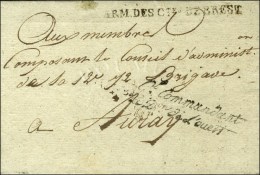 ARM. DES CÔTES DE BREST
Aux membres
Composant le Conseil d'administ.on
de la 12e 1/2 Brigade
Le Commandant
d'ouest
a Auray